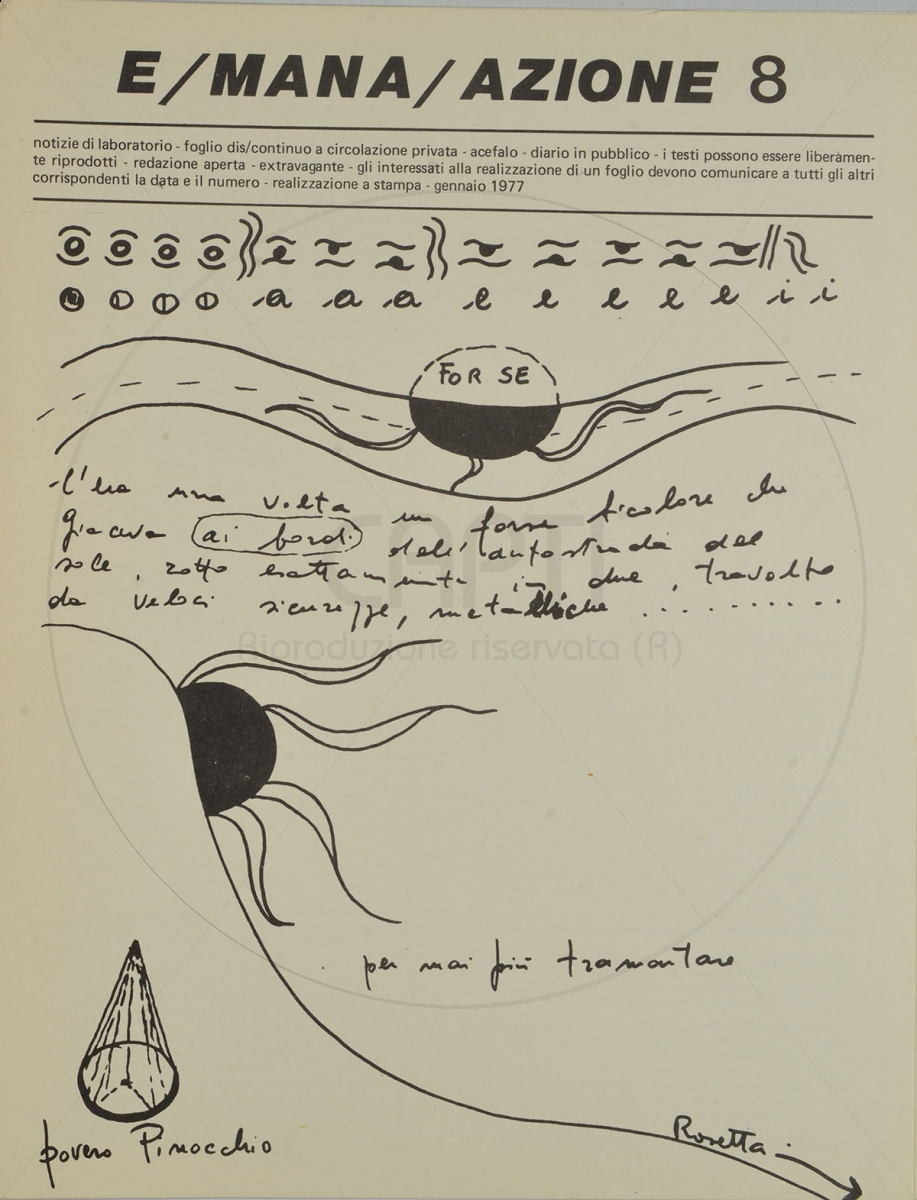 E/MANA/AZIONE 8
notizie di laboratorio - foglio dis/continuo a circolazione privata - acefalo - diario in pubblico - i testi possono essere liberamen-
te riprodotti - redazione aperta - extravagante - gli interessati alla realizzazione di un foglio devono comunicare a tutti gli altri
corrispondenti la data e il numero - realizzazione a stampa - gennaio 1977
a a a e e e e e i i
FOR SE
una volta un forse che
giaceva ai bordi dell'autostrada del
sole, rotto esattamente in due, travolto
da veloci sicurezze, metalliche ..........
CAPTI
Riproduzione riservata (R)
per mai più tramontare
povero Pinocchio
Rosetta